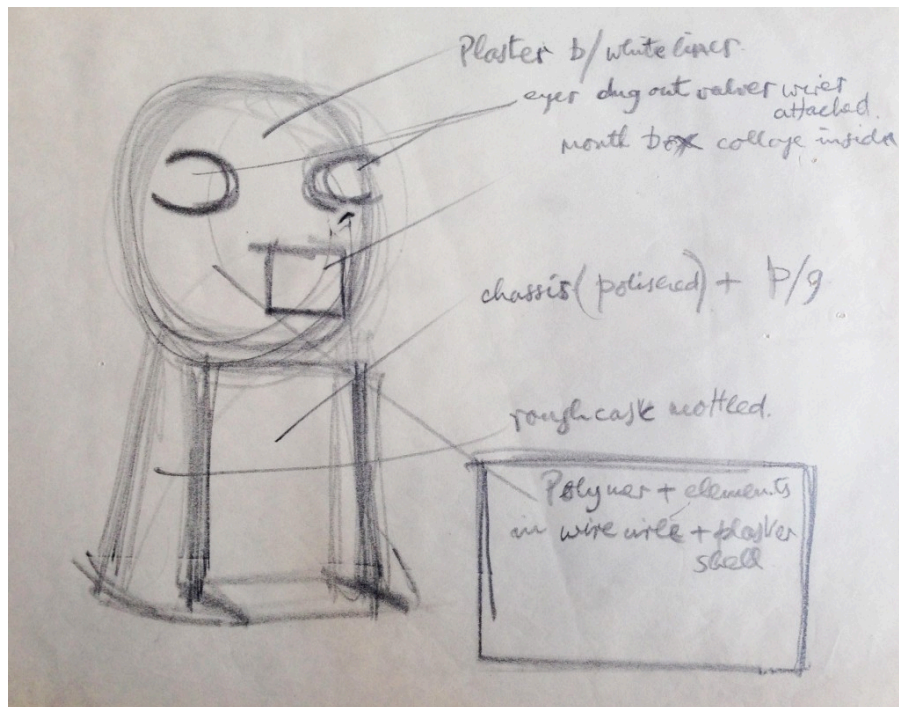 Plaster b/white liner
eyes dug out valves wires
attached.
mouth box collage inside
chassis (polished) + P/g
roughcast mottled.
Polymer + elements
in wire + plaster
shell